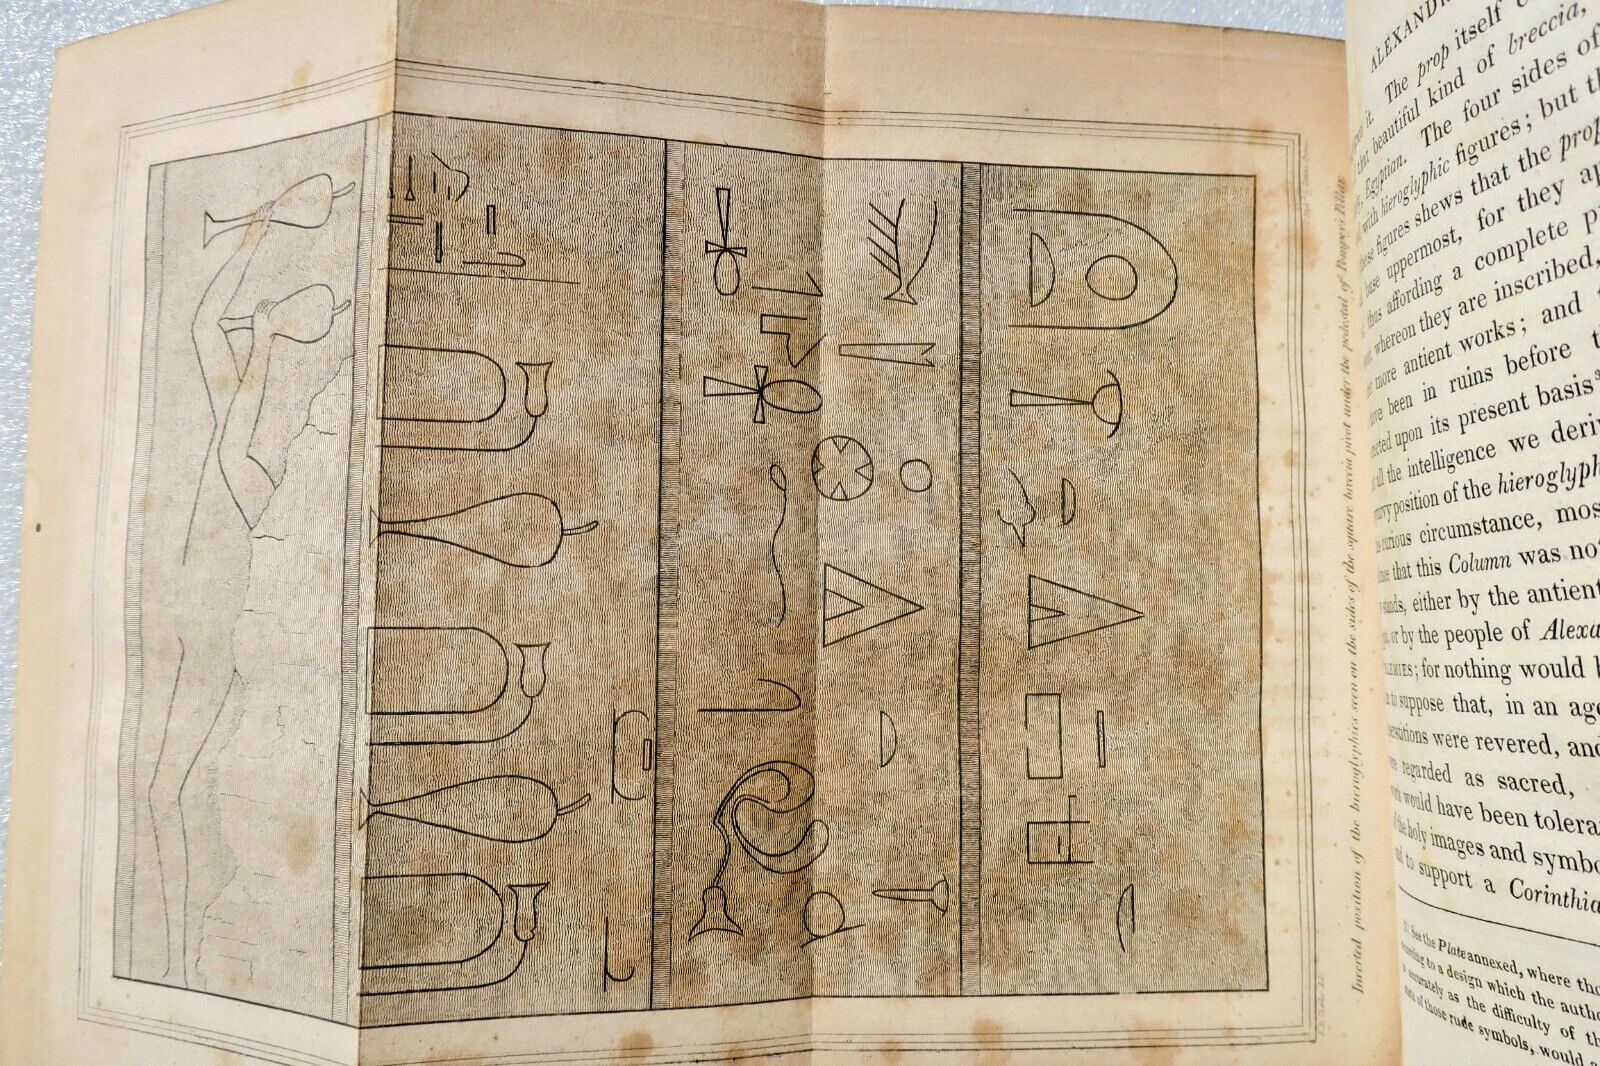 Inverted position of the hieroglyphics seen on the sides of the square breccia pivot under the pedestal of Pompey's Pillar
ALEXANDR
it. The prop itself
that beautiful kind of breccia,
Egyptian. The four sides of
with hieroglyphic figures; but th
figures shews that the prop
base uppermost, for they ap
thus affording a complete p
whereon they are inscribed,
more antient works; and
have been in ruins before t
upon its present basis
all the intelligence we deriv
position of the hieroglyph
curious circumstance, mos
that this Column was no
stands, either by the antient
or by the people of Alexa
for nothing would b
to suppose that, in an age
were revered, and
regarded as sacred,
would have been tolera
of the holy images and symbo
to support a Corinthia
See the Plate annexed, where tho
according to a design which the autho
accurately as the difficulty of th
of those rude symbols, would a